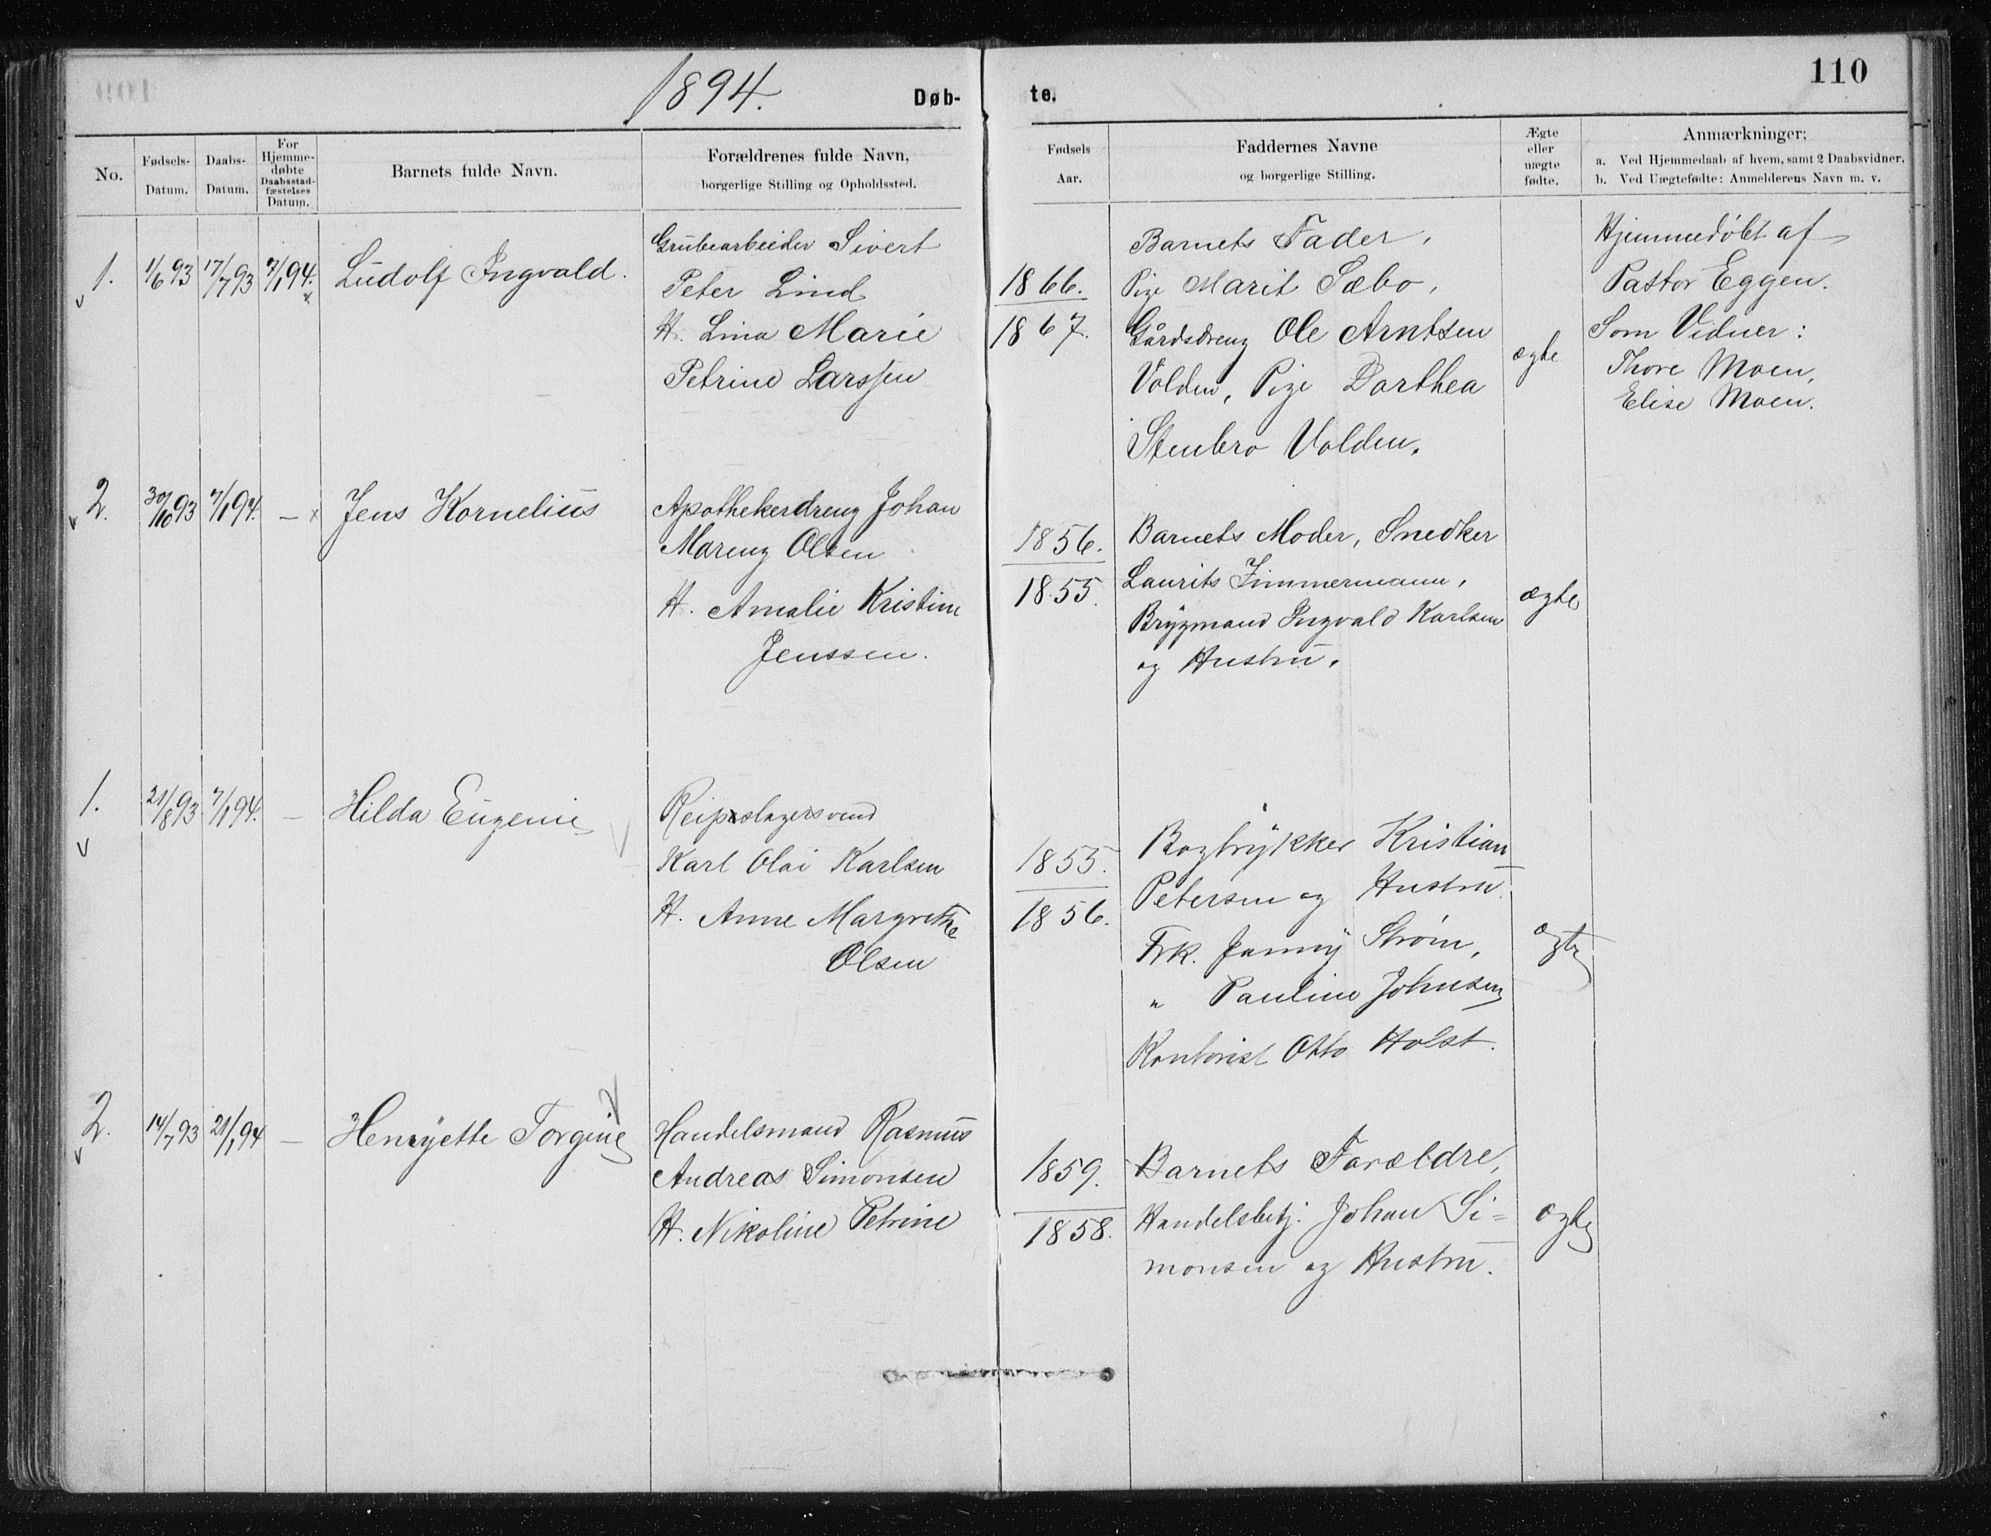 1894.
Døb-
te.
110
No.
Fødsels-
Datum.
Daabs-
Datum.
For
Hjemme-
døbte
Daabsstad-
fæstelses
Datum.
Barnets fulde Navn.
Forældrenes fulde Navn,
borgerlige Stilling og Opholdssted.
Fødsels
Aar.
Faddernes Navne
og borgerlige Stilling.
Ægte
eller
uægte
fødte.
Anmærkninger;
a. Ved Hjemmedaab af hvem, samt 2 Daabsvidner.
b. Ved Uægtefødte: Anmelderens Navn m. v.
1.
1/6 93
17/7 93
7/1 94.
Ludolf Ingvald.
Grubearbeider Sivert
Peter Lind
H. Lina Marie
Petrine Larssen
1866.
1867.
Barnets Fader,
Pige Marit Sæbo,
Gårdsdreng Ole Arntsen
Volden, Pige Dorthea
Stenbro Volden.
ægte
Hjemmedøbt af
Pastor Eggen.
Som Vidner:
Thore Moen,
Elise Moen.
2.
30/10 93
7/1 94.
—
Jens Kornelius
Apothekerdreng Johan
Mareng Olsen
H. Amalie Kristine
Jenssen.
1856.
1855.
Barnets Moder, Snedker
Laurits Zimmermann,
Brygmand Ingvald Karlsen
og Hustru.
ægte
1.
21/8 93
7/1 94.
—
Hilda Eugenie
Reipslagersvend
Karl Olai Karlsen
H. Anne Margrethe
Olsen
1855.
1856.
Bogtrykker Kristian
Petersen og Hustru.
Frk. Janny Strøm,
" Pauline Johnsen
Kontorist Otto Holst.
ægte
2.
14/7 93
21/1 94
—
Henryette Torgine
Handelsmand Rasmus
Andreas Simonsen
H. Nikoline Petrine
1859.
1858.
Barnets Forældre,
Handelsbetj. Johan Si-
monsen og Hustru.
ægte